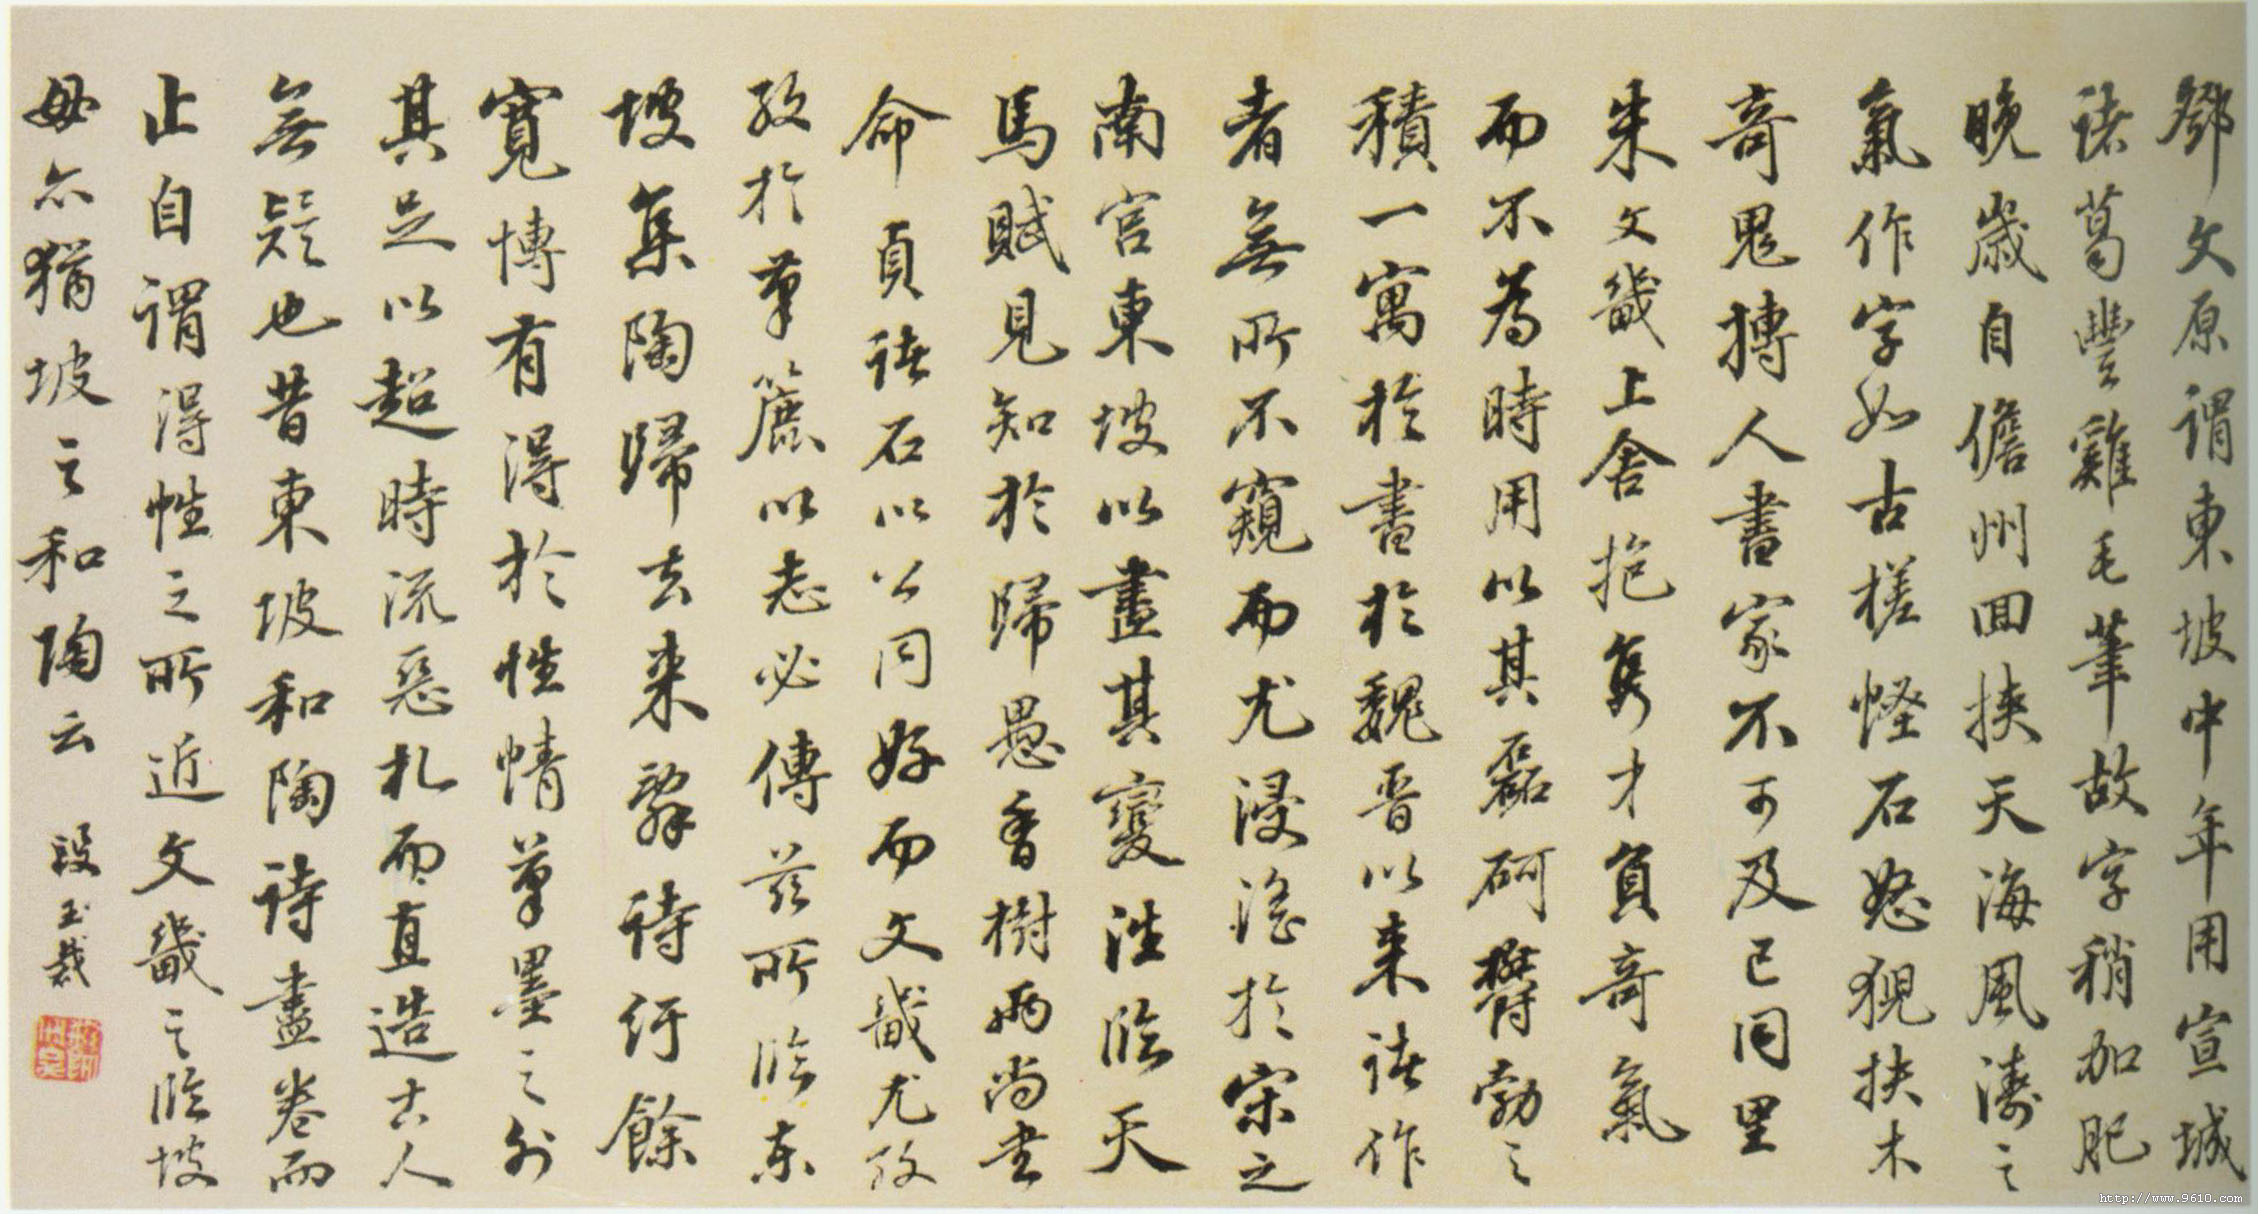 鄧文原謂東坡中年用宣城
諸葛豐雞毛筆故字稍加肥
晚歲自儋州回挾天海風濤之
氣作字如古槎怪石怒猊扶木
奇鬼搏人書家不可及已同里
朱文畿上舍抱雋才負奇氣
而不為時用以其磊砢鬱勃之
積一寓於書於魏晉以來諸作
者無所不窺而尤浸淫於宋之
南宮東坡以盡其變法臨天
馬賦見知於歸愚香樹兩尚書
命貞諸石以公同好而文畿尤孜
孜於筆簏以志必傳茲所臨東
坡集陶歸去來辭詩紆餘
寬博有得於性情筆墨之外
其足以超時流惡札而直造古人
無疑也昔東坡和陶詩盡卷而
止自謂得性之所近文畿之臨坡
毋亦猶坡之和陶云 段玉裁
http://www.9610.com